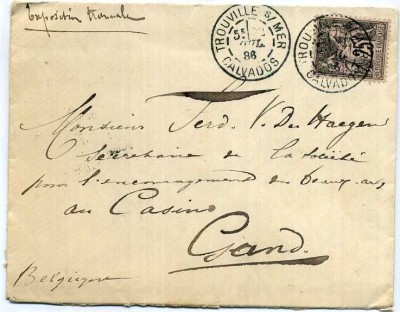 Exposition triennale
TROUVILLE S/MER
5E
JUIL.
86
CALVADOS
TROUVILLE
CALVADOS
25
Monsieur Ferd. V. Der Haegen
Secretaire de la Société
pour l'encouragement des beaux-arts
au Casino
Gand.
Belgique